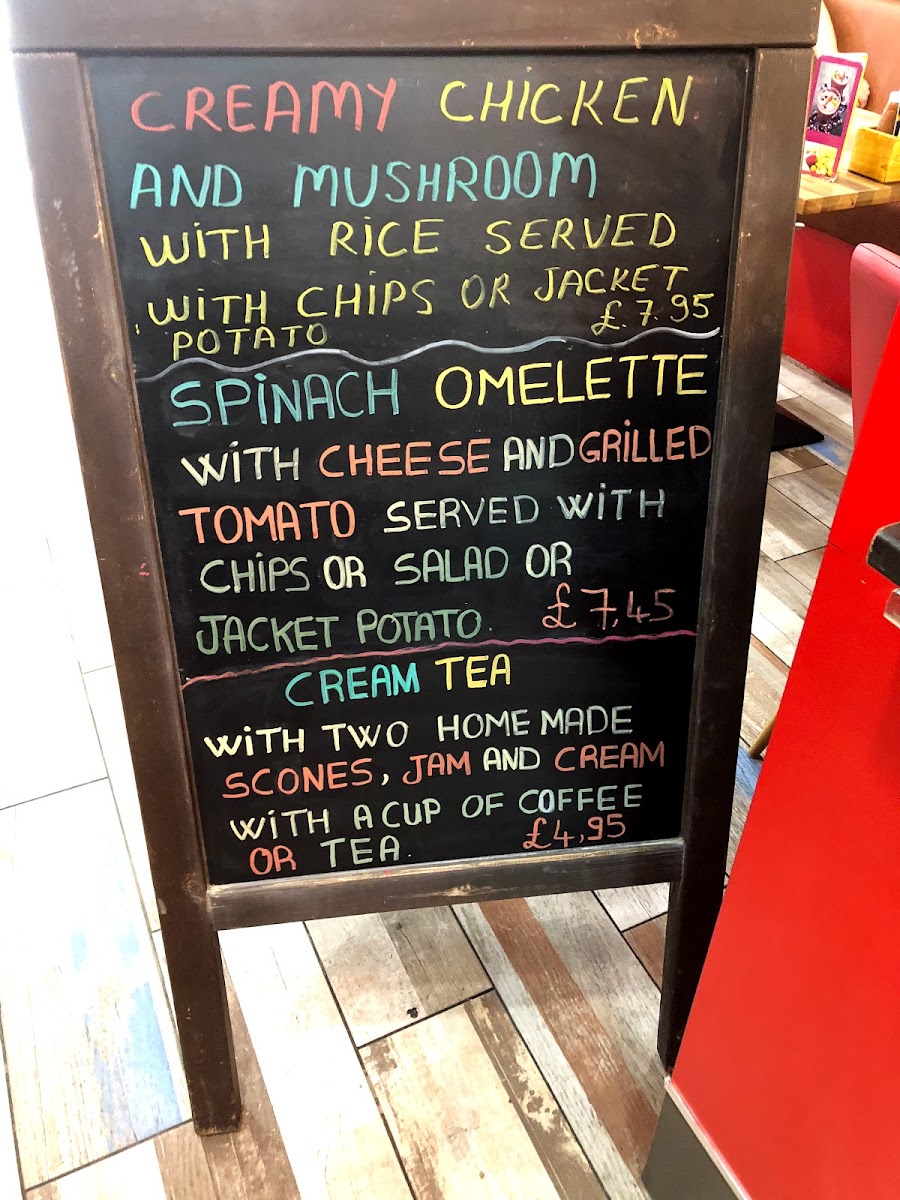 CREAMY CHICKEN
AND MUSHROOM
WITH RICE SERVED
WITH CHIPS OR JACKET
POTATO £.7.95
SPINACH OMELETTE
WITH CHEESE AND GRILLED
TOMATO SERVED WITH
CHIPS OR SALAD OR
JACKET POTATO. £7,45
CREAM TEA
WITH TWO HOME MADE
SCONES, JAM AND CREAM
WITH A CUP OF COFFEE
OR TEA. £4,95